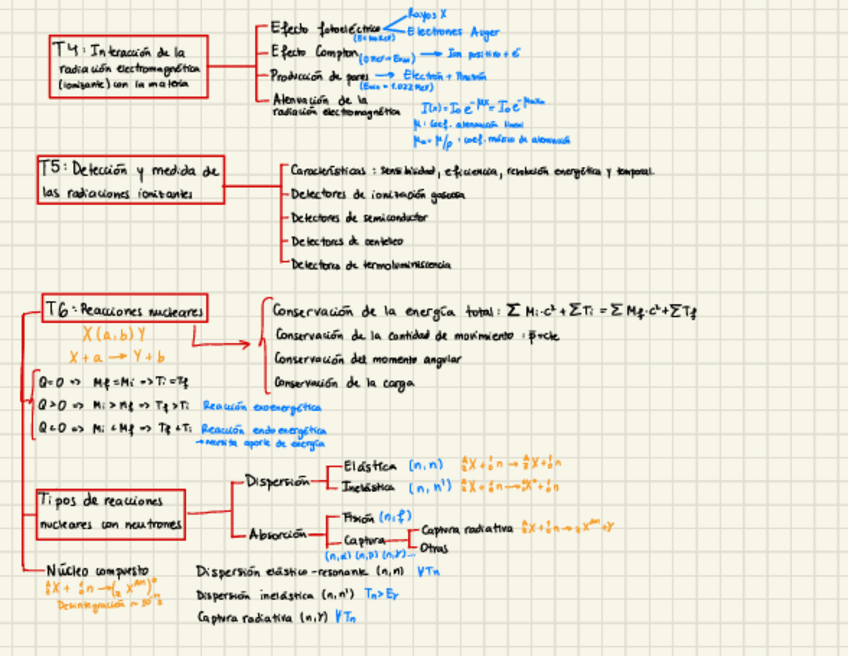 T4: Interacción de la
radiación electromagnética
(ionizante) con la materia
Efecto fotoeléctrico
Rayos X
Electrones Auger
Efecto Compton
→ Ion positivo + e⁻
Producción de pares → Electrón + Positrón
Atenuación de la
radiación electromagnética
μ: coef. atenuación lineal
μₘ = μ/ρ : coef. másico de atenuación
T5: Detección y medida de
las radiaciones ionizantes
Características: sensibilidad, eficiencia, resolución energética y temporal.
Detectores de ionización gaseosa
Detectores de semiconductor
Detectores de centelleo
Detectores de termoluminiscencia
T6: Reacciones nucleares
X(a,b)Y
X + a → Y + b
Conservación de la energía total: Σ Mi·c² + ΣTi = Σ Mf·c² + ΣTf
Conservación de la cantidad de movimiento: p̄=cte
Conservación del momento angular
Conservación de la carga
Q=0 => Mf=Mi => Ti=Tf
Q>0 => Mi>Mf => Tf>Ti Reacción exoenergética
Q<0 => Mi<Mf => Tf<Ti Reacción endoenergética
→ necesita aporte de energía
Tipos de reacciones
nucleares con neutrones
Dispersión
Elástica (n,n)
Inelástica (n,n')
Absorción
Fisión (n,f)
Captura
(n,α) (n,p) (n,γ)...
Captura radiativa
Otras
Núcleo compuesto
Dispersión elástico-resonante (n,n) ∀Tn
Dispersión inelástica (n,n') Tn>Eγ
Captura radiativa (n,γ) ∀Tn